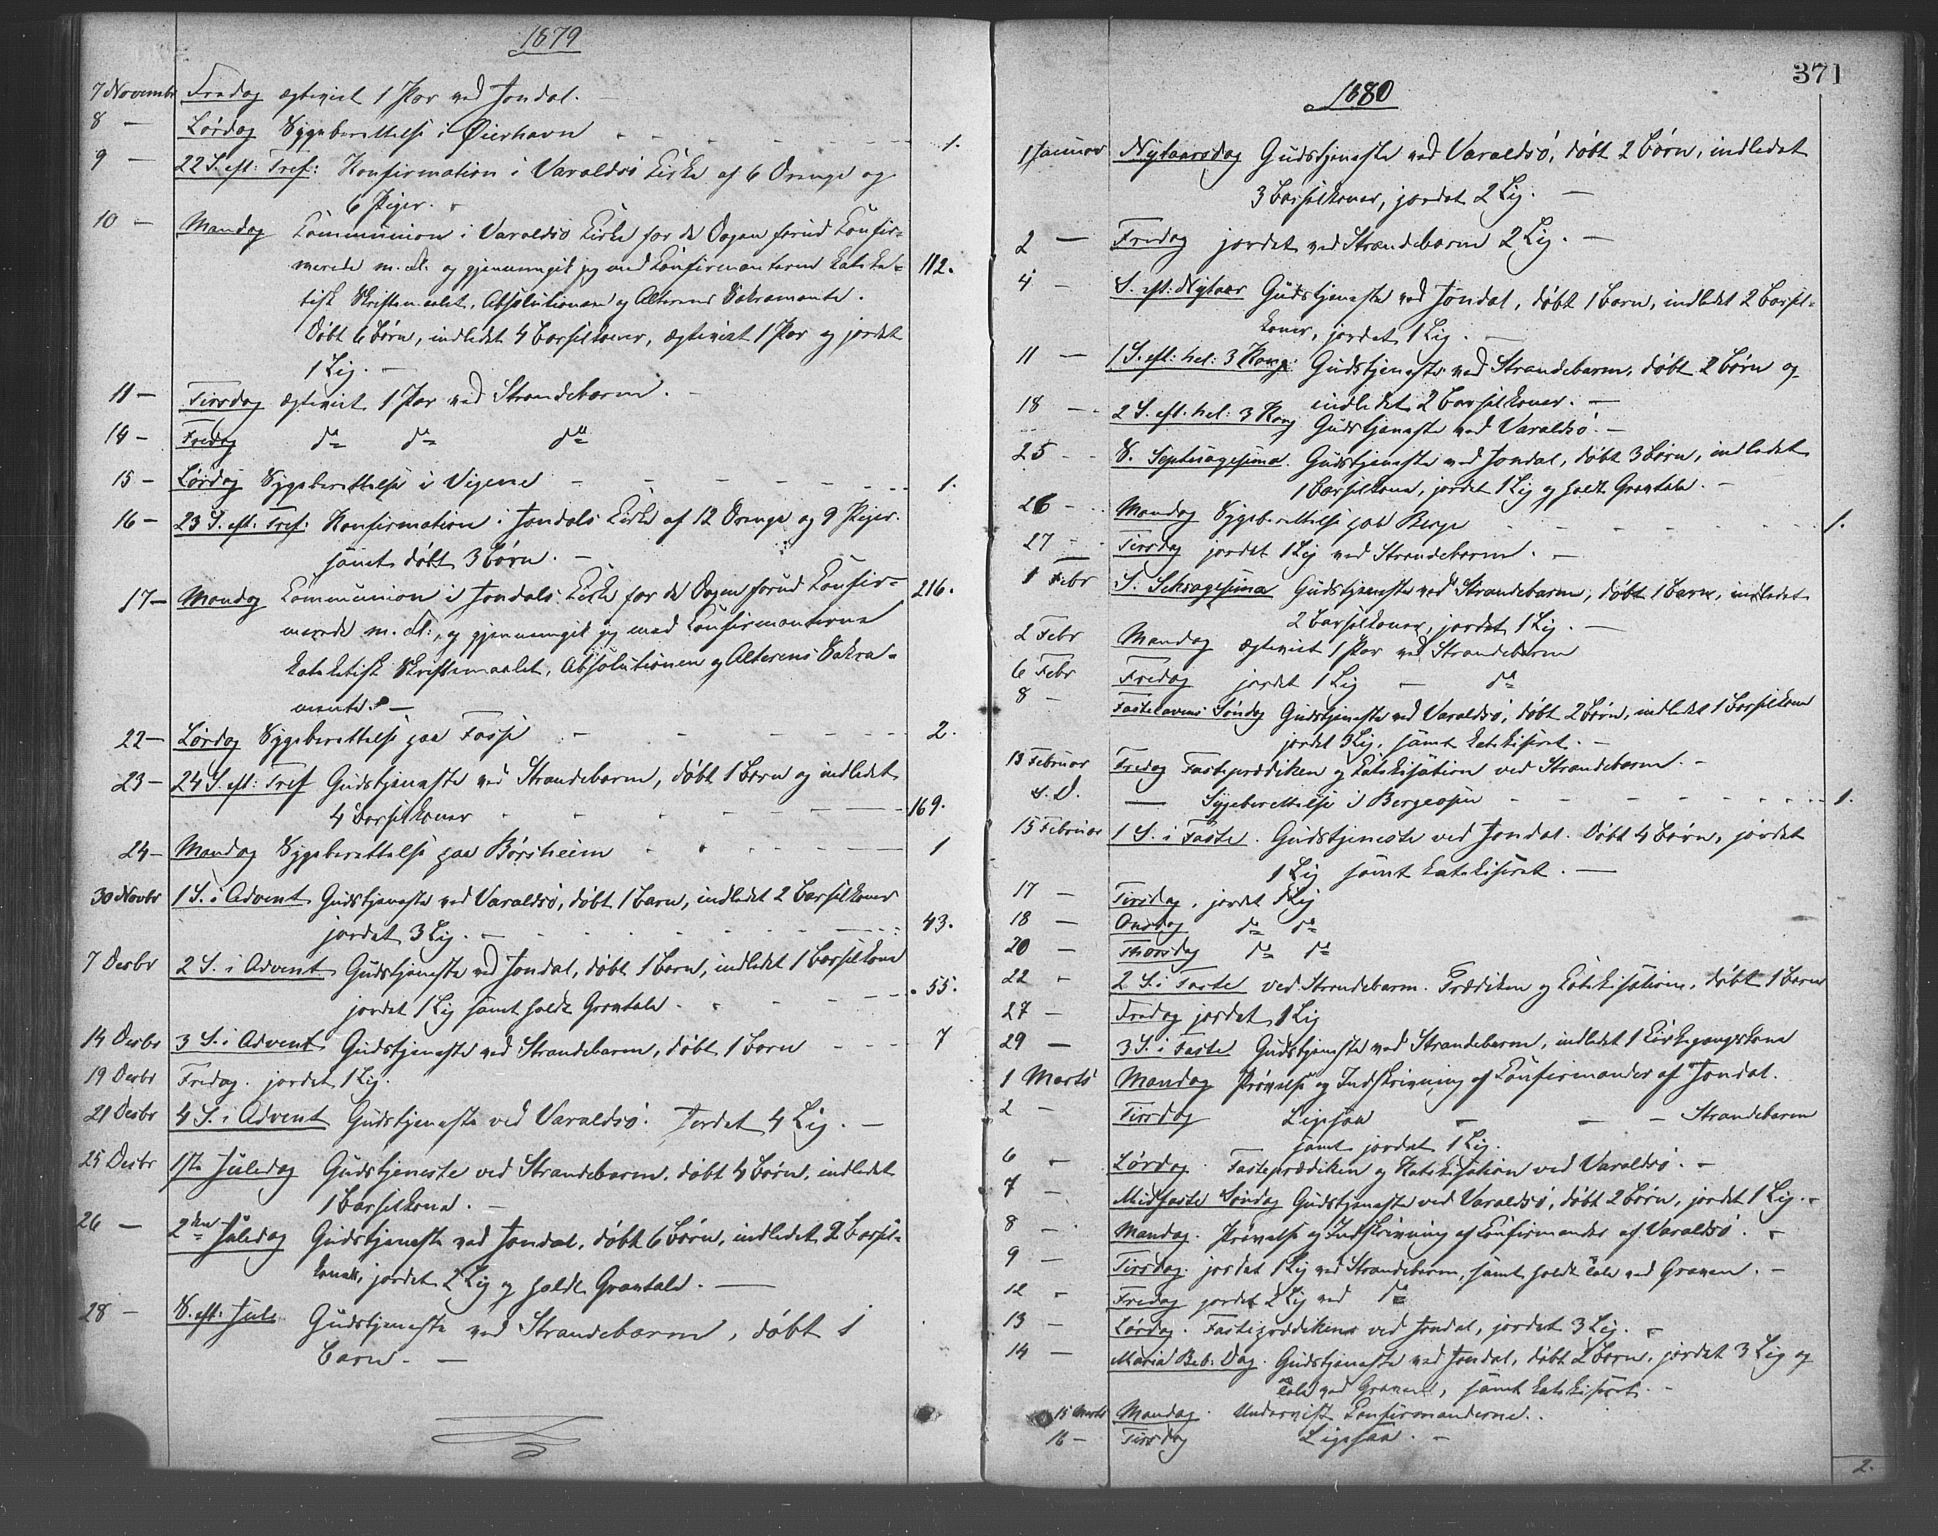 1879
7 Novembr Fredag ægteviet 1 Par ved Jondal. —
8 — Lørdag Sygeberettelse i Øierhavn 1.
9 — 22 S. eft: Tref: Konfirmation i Varaldsö Kirke af 6 Drenge og
6 Piger.
10 — Mandag Communion i Varaldsö Kirke for de Dagen forud Konfir-
merede m. fl. og gjennemgik jeg med Konfirmanterne kateke- 112.
tisk Skriftemaalet, Absolutionen og Alterens Sakramente.
Døbt 6 Børn, indledet 4 Barselkoner, ægteviet 1 Par og jordet
1 Lig. —
11 — Tirsdag ægteviet 1 Par ved Strandebarm. —
14 — Fredag do do do
15 — Lørdag Sygeberettelse i Vigene 1.
16 — 23 S. eft: Tref: Konfirmation i Jondals Kirke af 12 Drenge og 9 Piger.
samt døbt 3 Børn. —
17 — Mandag Communion i Jondals Kirke for de Dagen forud Konfir- 216.
merede m. fl., og gjennemgik jeg med Konfirmanterne
kateketisk Skriftemaalet, Absolutionen og Alterens Sakra-
mente. —
22 — Lørdag Sygeberettelse paa Fosse 2.
23 — 24 S. eft: Tref Gudstjeneste ved Strandebarm, døbt 1 Barn og indledet
4 Barselkoner 169.
24 — Mandag Sygeberettelse paa Börsheim 1
30 Novbr 1 S. i Advent Gudstjeneste ved Varaldsö, døbt 1 Barn, indledet 2 Barselkoner
jordet 3 Lig. — 43.
7 Desbr 2 S. i Advent Gudstjeneste ved Jondal, døbt 1 Barn, indledet 1 Barselkone
jordet 1 Lig samt holdt Gravtale. 55.
14 Desbr 3 S. i Advent Gudstjeneste ved Strandebarm, døbt 1 Barn 7
19 Desbr Fredag. jordet 1 Lig.
21 Desbr 4 S. i Advent Gudstjeneste ved Varaldsö. Jordet 4 Lig. —
25 Desbr 1ste Juledag Gudstjeneste ved Strandebarm, døbt 4 Børn, indledet
1 Barselkone. —
26 — 2den Juledag Gudstjeneste ved Jondal, døbt 6 Børn, indledet 2 Barsel-
koner, jordet 2 Lig og holdt Gravtale. —
28 — S. eft: Jule Gudstjeneste ved Strandebarm, døbt 1
Barn. —
371
1880
1 Januar Nytaarsdag Gudstjeneste ved Varaldsö, døbt 2 Børn, indledet
3 Barselkoner, jordet 2 Lig. —
2 — Fredag jordet ved Strandebarm 2 Lig. —
4 — S. eft: Nytaar Gudstjeneste ved Jondal, døbt 1 Barn, indledet 2 Barsel-
koner, jordet 1 Lig. —
11 — 1 S. eft: hel: 3 Kong. Gudstjeneste ved Strandebarm, døbt 2 Børn og
indledet 2 Barselkoner. —
18 — 2 S. eft. hel: 3 Kong Gudstjeneste ved Varaldsö. —
25 — S. Septuagesima. Gudstjeneste ved Jondal, døbt 3 Børn, indledet
1 Barselkone, jordet 1 Lig og holdt Gravtale. —
26 — Mandag Sygeberettelse paa Berge 1.
27 — Tirsdag jordet 1 Lig ved Strandebarm. —
1 Febr S. Seksagesima Gudstjeneste ved Strandebarm, døbt 1 Barn, indledet
2 Barselkoner, jordet 1 Lig. —
2 Febr Mandag ægteviet 1 Par ved Strandebarm
6 Febr Fredag jordet 1 Lig — do
8 — Fastelavens Søndag Gudstjeneste ved Varaldsö, døbt 2 Børn, indledet 1 Barselkone
jordet 3 Lig, samt katekiseret. —
13 Februar Fredag Fasteprædiken og Katekisation ved Strandebarm. —
s. D. — Sygeberettelse i Bergeosen 1.
15 Februar 1 S. i Faste. Gudstjeneste ved Jondal. Døbt 4 Børn, jordet
1 Lig samt katekiseret. —
17 — Tirsdag, jordet 1 Lig
18 — Onsdag do do
20 — Thorsdag do do
22 — 2 S. i Faste ved Strandebarm. Prædiken og Katekisation, døbt 1 Barn
27 — Fredag jordet 1 Lig
29 — 3 S. i Faste Gudstjeneste ved Strandebarm, indledet 1 Kirkegangskone
1 Marts Mandag Prøvelse og Indskrivning af Confirmander af Jondal.
2 — Tirsdag Ligesaa — — — Strandebarm
samt jordet 1 Lig.
6 — Lørdag. Fasteprædiken og Katekisation ved Varaldsö. —
7 — Midfaste Søndag Gudstjeneste ved Varaldsö, døbt 2 Børn, jordet 1 Lig. —
8 — Mandag. Prøvelse og Indskrivning af Confirmander af Varaldsö.
9 — Tirsdag. jordet 1 Lig ved Strandebarm, samt holdt Tale ved Graven. —
12 — Fredag jordet 2 Lig ved do
13 — Lørdag. Fasteprædiken ved Jondal, jordet 3 Lig. —
14 — Maria Beb. Dag. Gudstjeneste ved Jondal, døbt 2 Børn, jordet 3 Lig og
Tale ved Graven, samt katekiseret. —
15 Marts Mandag. Undervist Confirmanderne.
16 — Tirsdag Ligesaa. —
2.